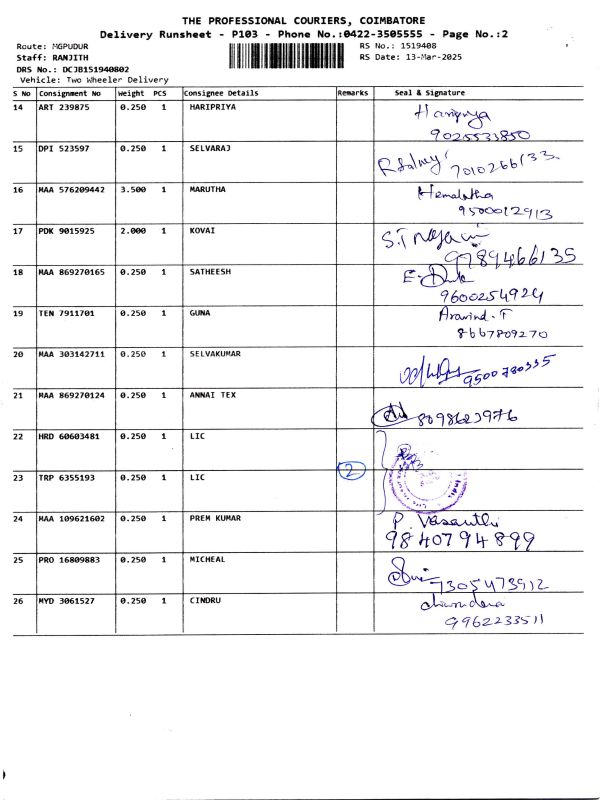 THE PROFESSIONAL COURIERS, COIMBATORE
Delivery Runsheet - P103 - Phone No.:0422-3505555 - Page No.:2
Route: MGPUDUR RS No.: 1519408
Staff: RANJITH RS Date: 13-Mar-2025
DRS No.: DCJB151940802
Vehicle: Two Wheeler Delivery
S No Consignment No Weight PCS Consignee Details Remarks Seal & Signature
14 ART 239875 0.250 1 HARIPRIYA Haripriya
9025533850
15 DPI 523597 0.250 1 SELVARAJ
7010266133
16 MAA 576209442 3.500 1 MARUTHA Hemalatha
9500012913
17 PDK 9015925 2.000 1 KOVAI
9789466135
18 MAA 869270165 0.250 1 SATHEESH
9600254924
19 TEN 7911701 0.250 1 GUNA Aravind. T
8667809270
20 MAA 303142711 0.250 1 SELVAKUMAR
9500780335
21 MAA 869270124 0.250 1 ANNAI TEX
8098623976
22 HRD 60603481 0.250 1 LIC
2
23 TRP 6355193 0.250 1 LIC
24 MAA 109621602 0.250 1 PREM KUMAR P. Vasanthi
9840794899
25 PRO 16809883 0.250 1 MICHEAL
7305473912
26 MYD 3061527 0.250 1 CINDRU
9962233511